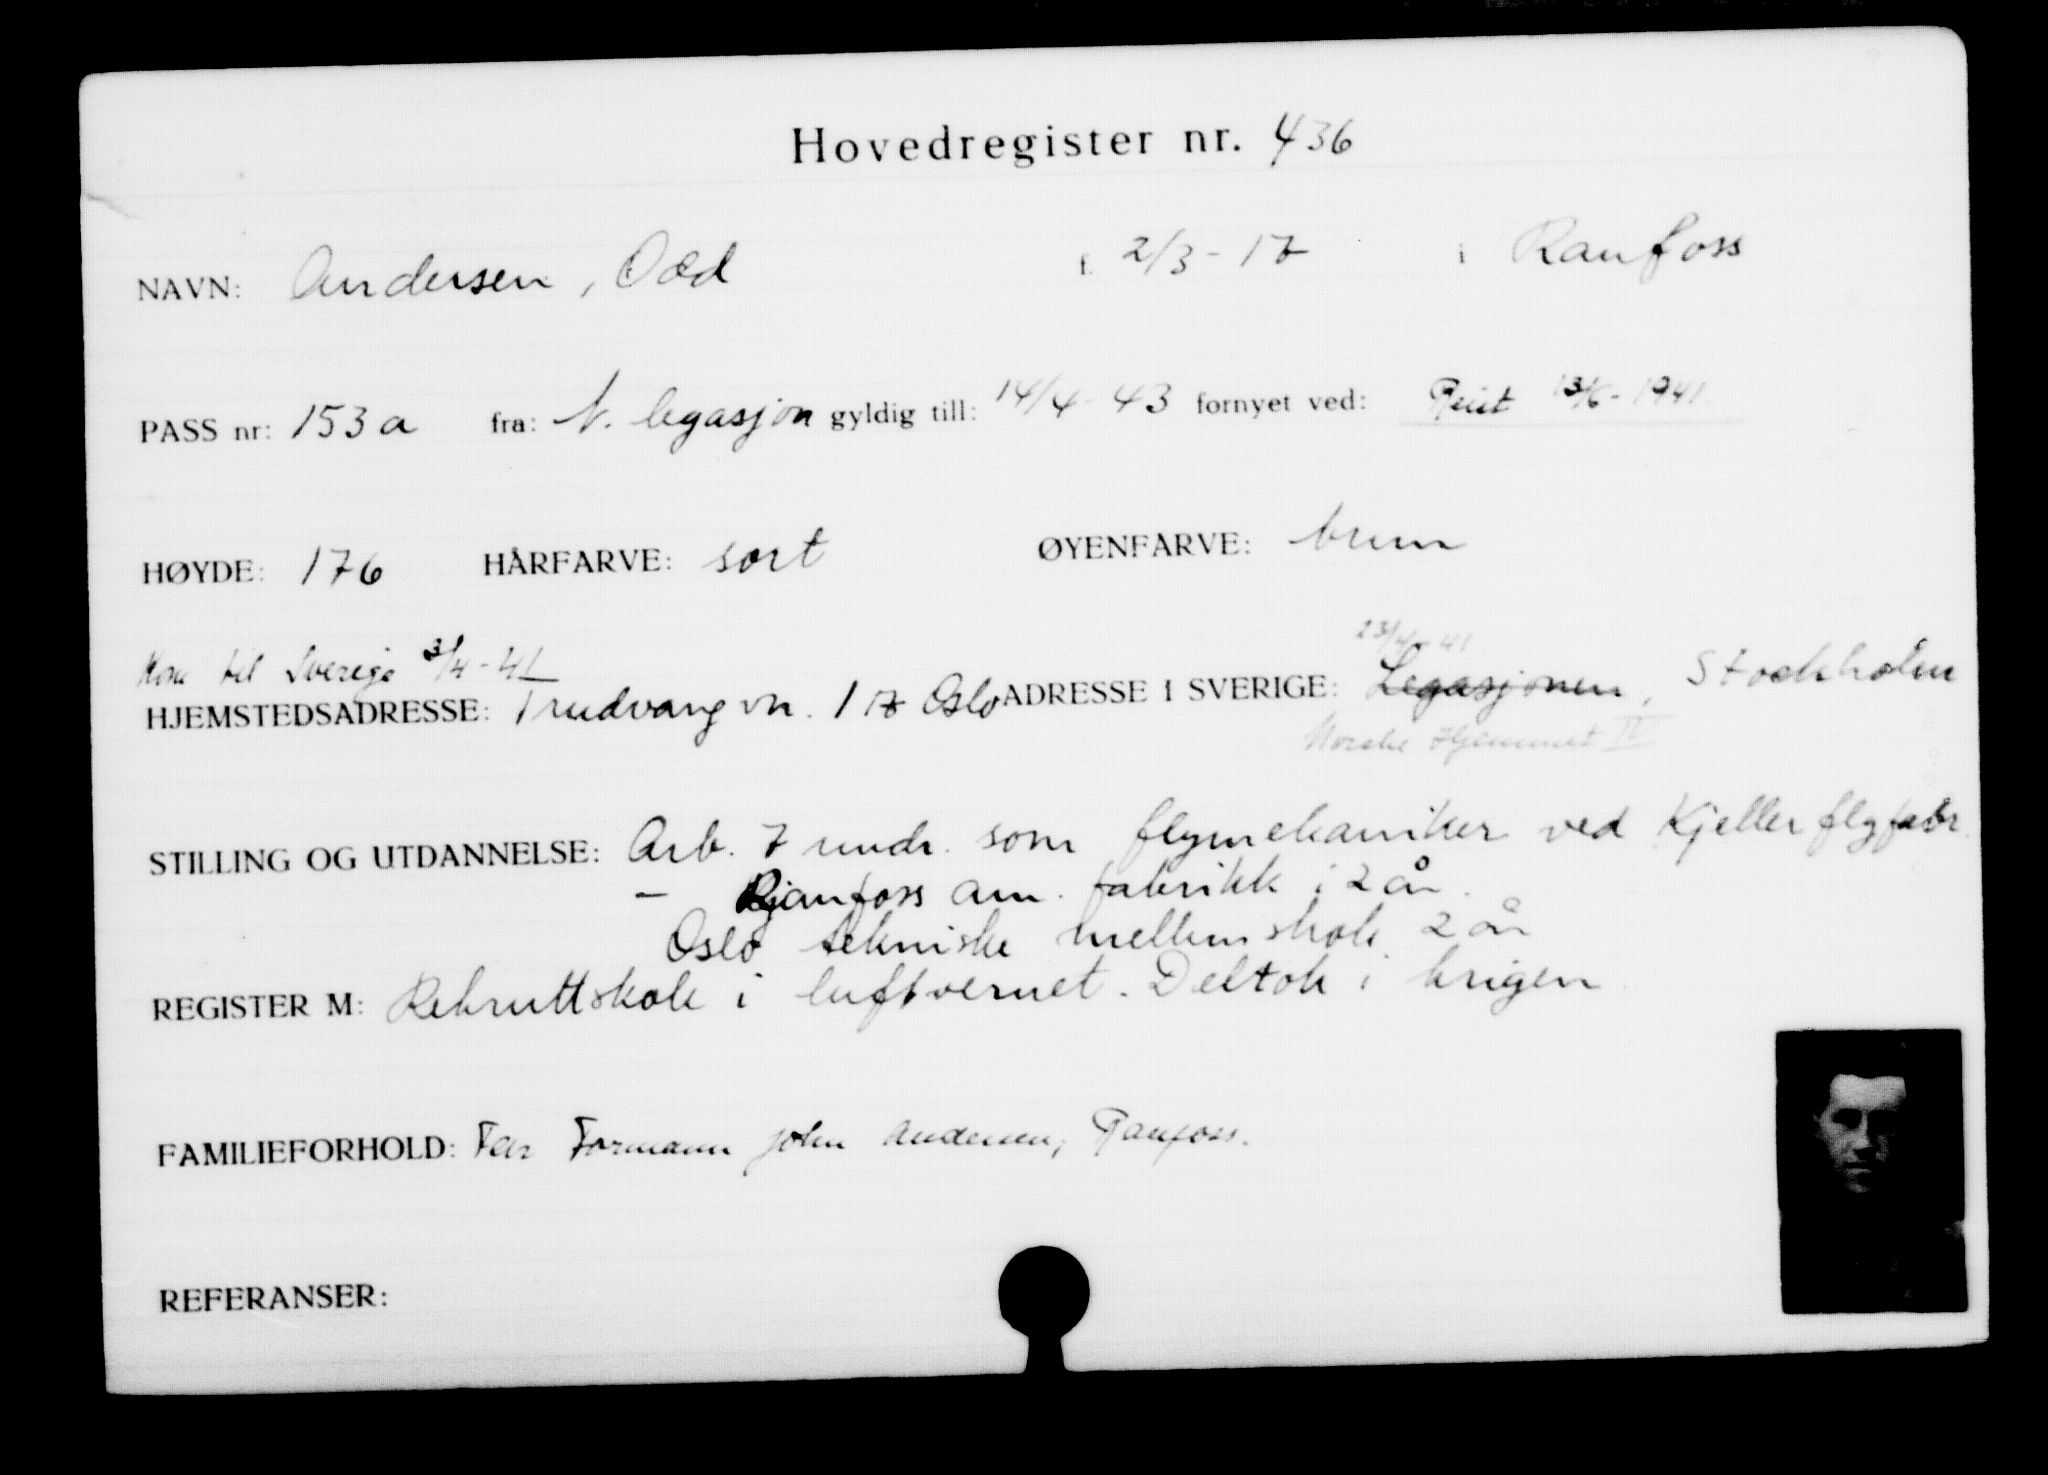 Hovedregister nr. 436
NAVN: Andersen, Odd f. 2/3-17 i Raufoss
PASS nr: 153a fra: N. legasjon gyldig till: 14/4-43 fornyet ved: Reist 13/6-1941
HØYDE: 176 HÅRFARVE: sort ØYENFARVE: brun
Kom til Sverige 3/4-41 23/4-41
HJEMSTEDSADRESSE: Trudvang vn. 17 Oslo ADRESSE I SVERIGE: Legasjonen, Stockholm
Norske Hjemmet IV
STILLING OG UTDANNELSE: Arb. 7 mndr. som flymekaniker ved Kjeller flyfabr.
— Raufoss am. fabrikk i 2 år.
Oslo tekniske mellemskole 2 år
REGISTER M: Rekruttskole i luftvernet. Deltok i krigen
FAMILIEFORHOLD: Far Formann John Andersen, Raufoss.
REFERANSER: